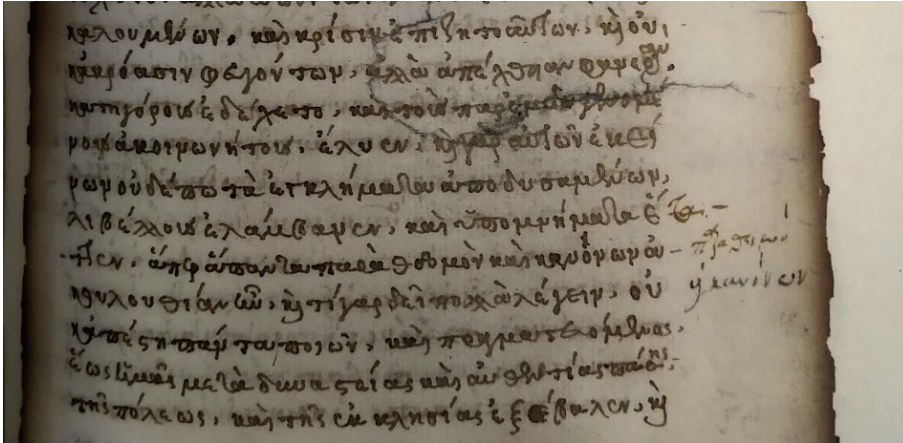 καλουμένων, καὶ κρίσιν ἐπιζητούντων, καὶ οὐ
κ ἀκρόασιν φευγόντων, ἀλλὰ ἀπέχθειαν φανεράν.
κατηγόρους ἐδέχετο, καὶ τοὺς παρ' ἐμοῦ γενομέ
νους ἀκοινωνήτους, ἔλυεν, καὶ παρ αὐτῶν ἐκεί
νων οὐδέπω τὰ ἐγκλήματα ἀποδυσαμένων,
λιβέλλους ἐλάμβανεν, καὶ ὑπομνήματα ἔπρα-
ττεν, ἅπερ ἅπαντα παρὰ θεσμὸν καὶ κανόνων ἀ-
κολουθίαν ἦν, καὶ τί γὰρ δεῖ πολλὰ λέγειν, οὐ
κ ἀπέστη πάντα ποιῶν, καὶ πραγματευόμενος,
ἕως ἡμᾶς μετὰ δυναστείας καὶ αὐθεντίας πάσης,
τῆς πόλεως, καὶ τῆς ἐκκλησίας ἐξέβαλεν, καὶ
κανόνων